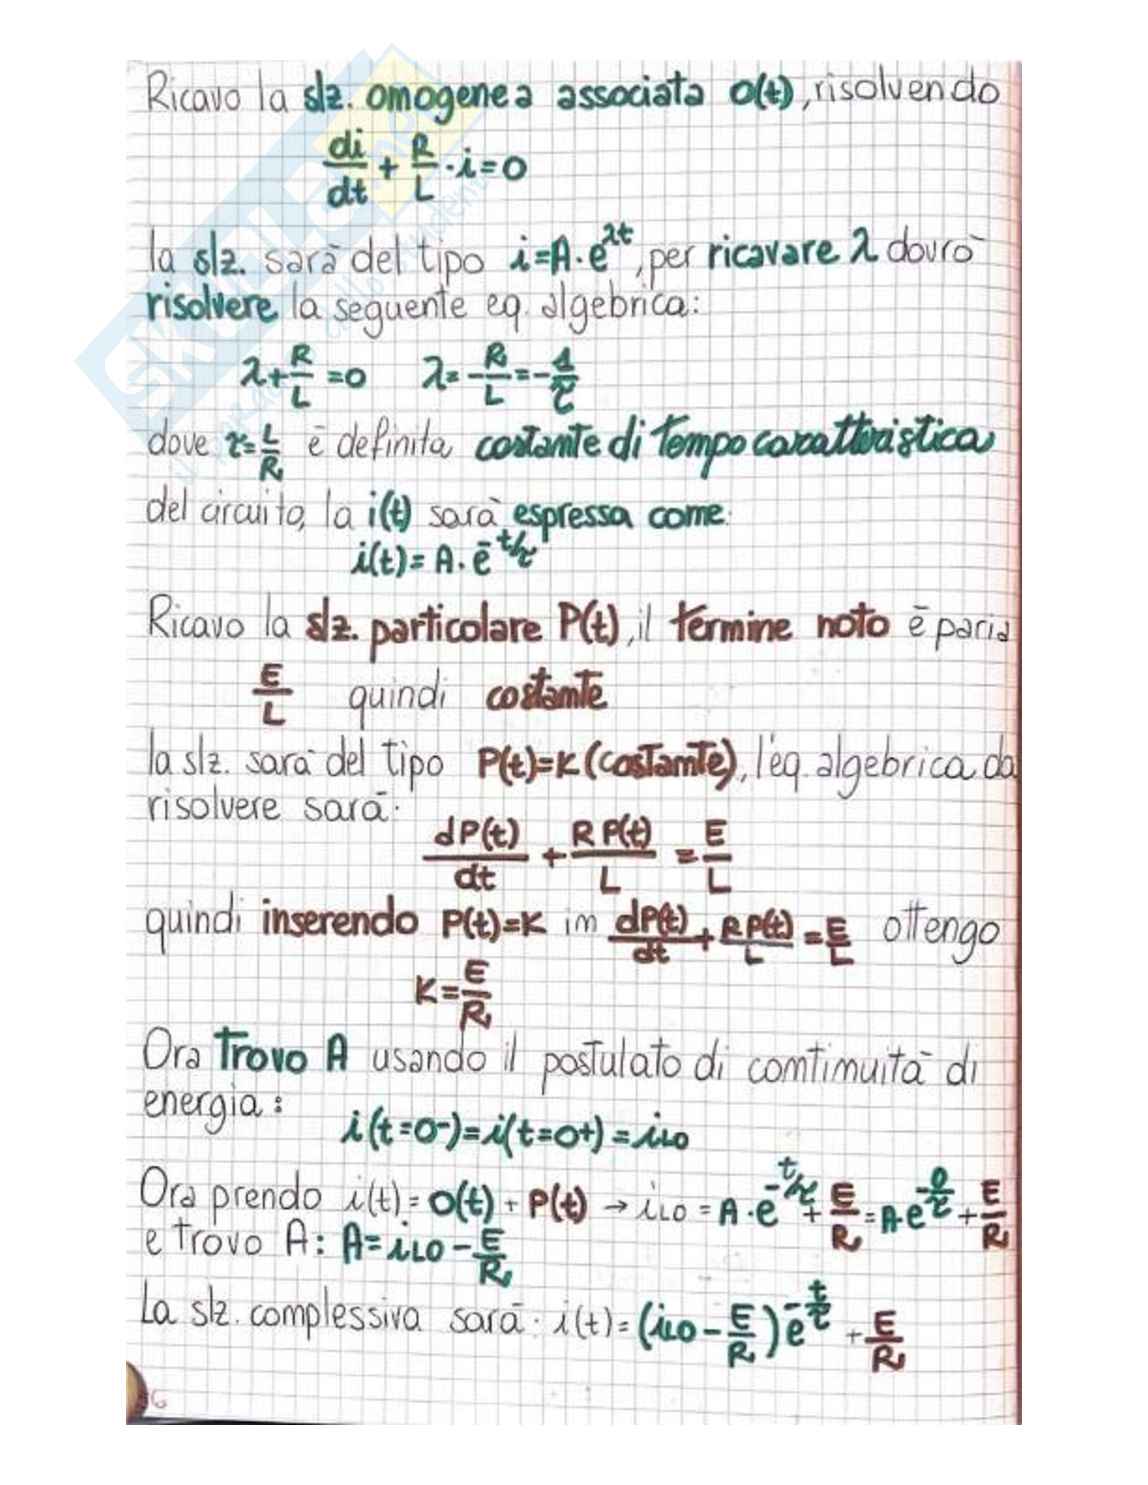 Ricavo la slz. omogenea associata O(t), risolvendo
di/dt + R/L · i = 0
la slz. sarà del tipo i = A · e^λt, per ricavare λ dovrò
risolvere la seguente eq. algebrica:
λ + R/L = 0 λ = -R/L = -1/τ
dove τ = L/R è definita costante di tempo caratteristica
del circuito, la i(t) sarà espressa come:
i(t) = A · e^-t/τ
Ricavo la slz. particolare P(t), il termine noto è pari a
E/L quindi costante
la slz. sarà del tipo P(t) = K (costante), l'eq. algebrica da
risolvere sarà:
dP(t)/dt + R P(t)/L = E/L
quindi inserendo P(t) = K in dP(t)/dt + R P(t)/L = E/L ottengo
K = E/R
Ora trovo A usando il postulato di continuità di
energia:
i(t=0-) = i(t=0+) = iL0
Ora prendo i(t) = O(t) + P(t) → iL0 = A · e^-t/τ + E/R = A · e^-0/τ + E/R
e trovo A: A = iL0 - E/R
La slz. complessiva sarà: i(t) = (iL0 - E/R) e^-t/τ + E/R
6
SKUOLA.net